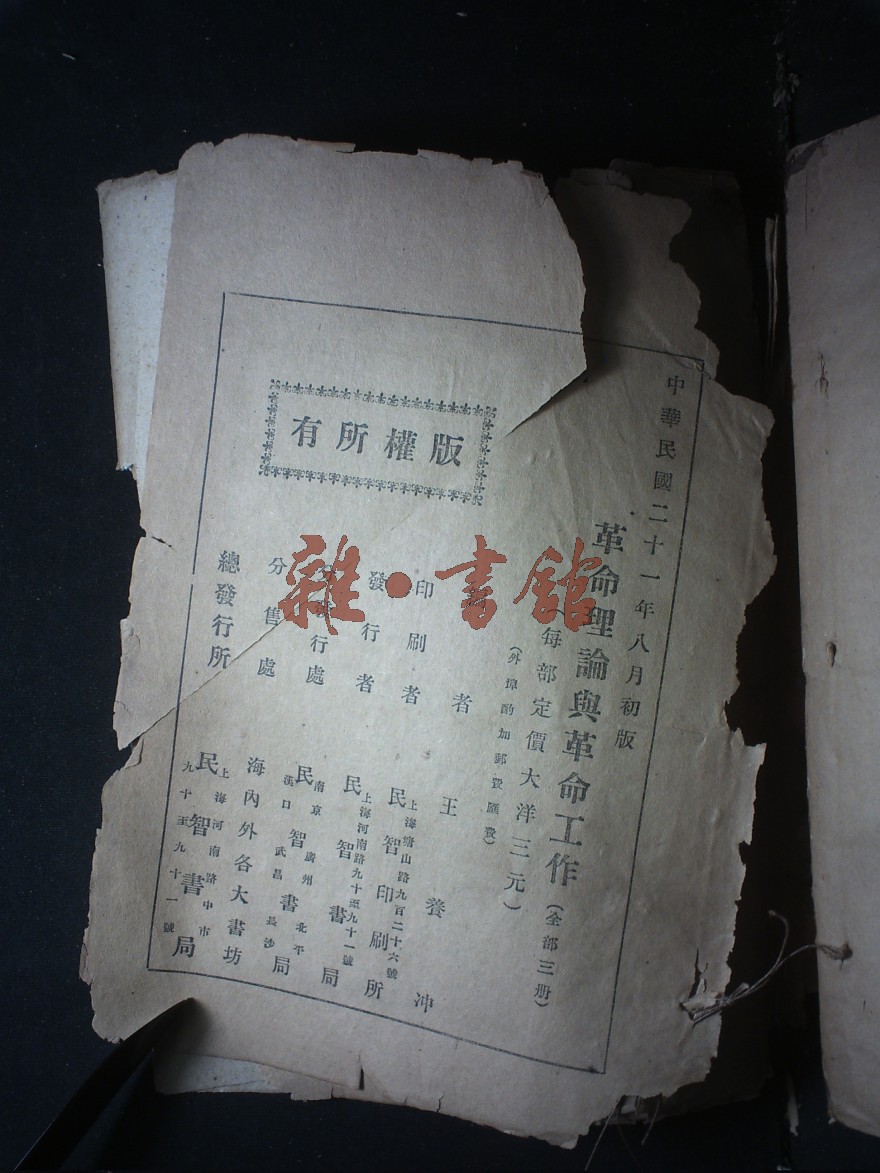 中華民國二十一年八月初版
革命理論與革命工作(全部三册)
(每部定價大洋三元)
(外埠酌加郵費匯費)
者 王養冲
印刷者 民智印刷所
上海塘山路九百二十六號
發行者 民智書局
上海河南路九十至九十一號
行處 民智書局
南京 廣州 北平
漢口 武昌 長沙
分售處 海內外各大書坊
總發行所 民智書局
上海河南路中市
九十至九十一號
版權所有
雜·書館